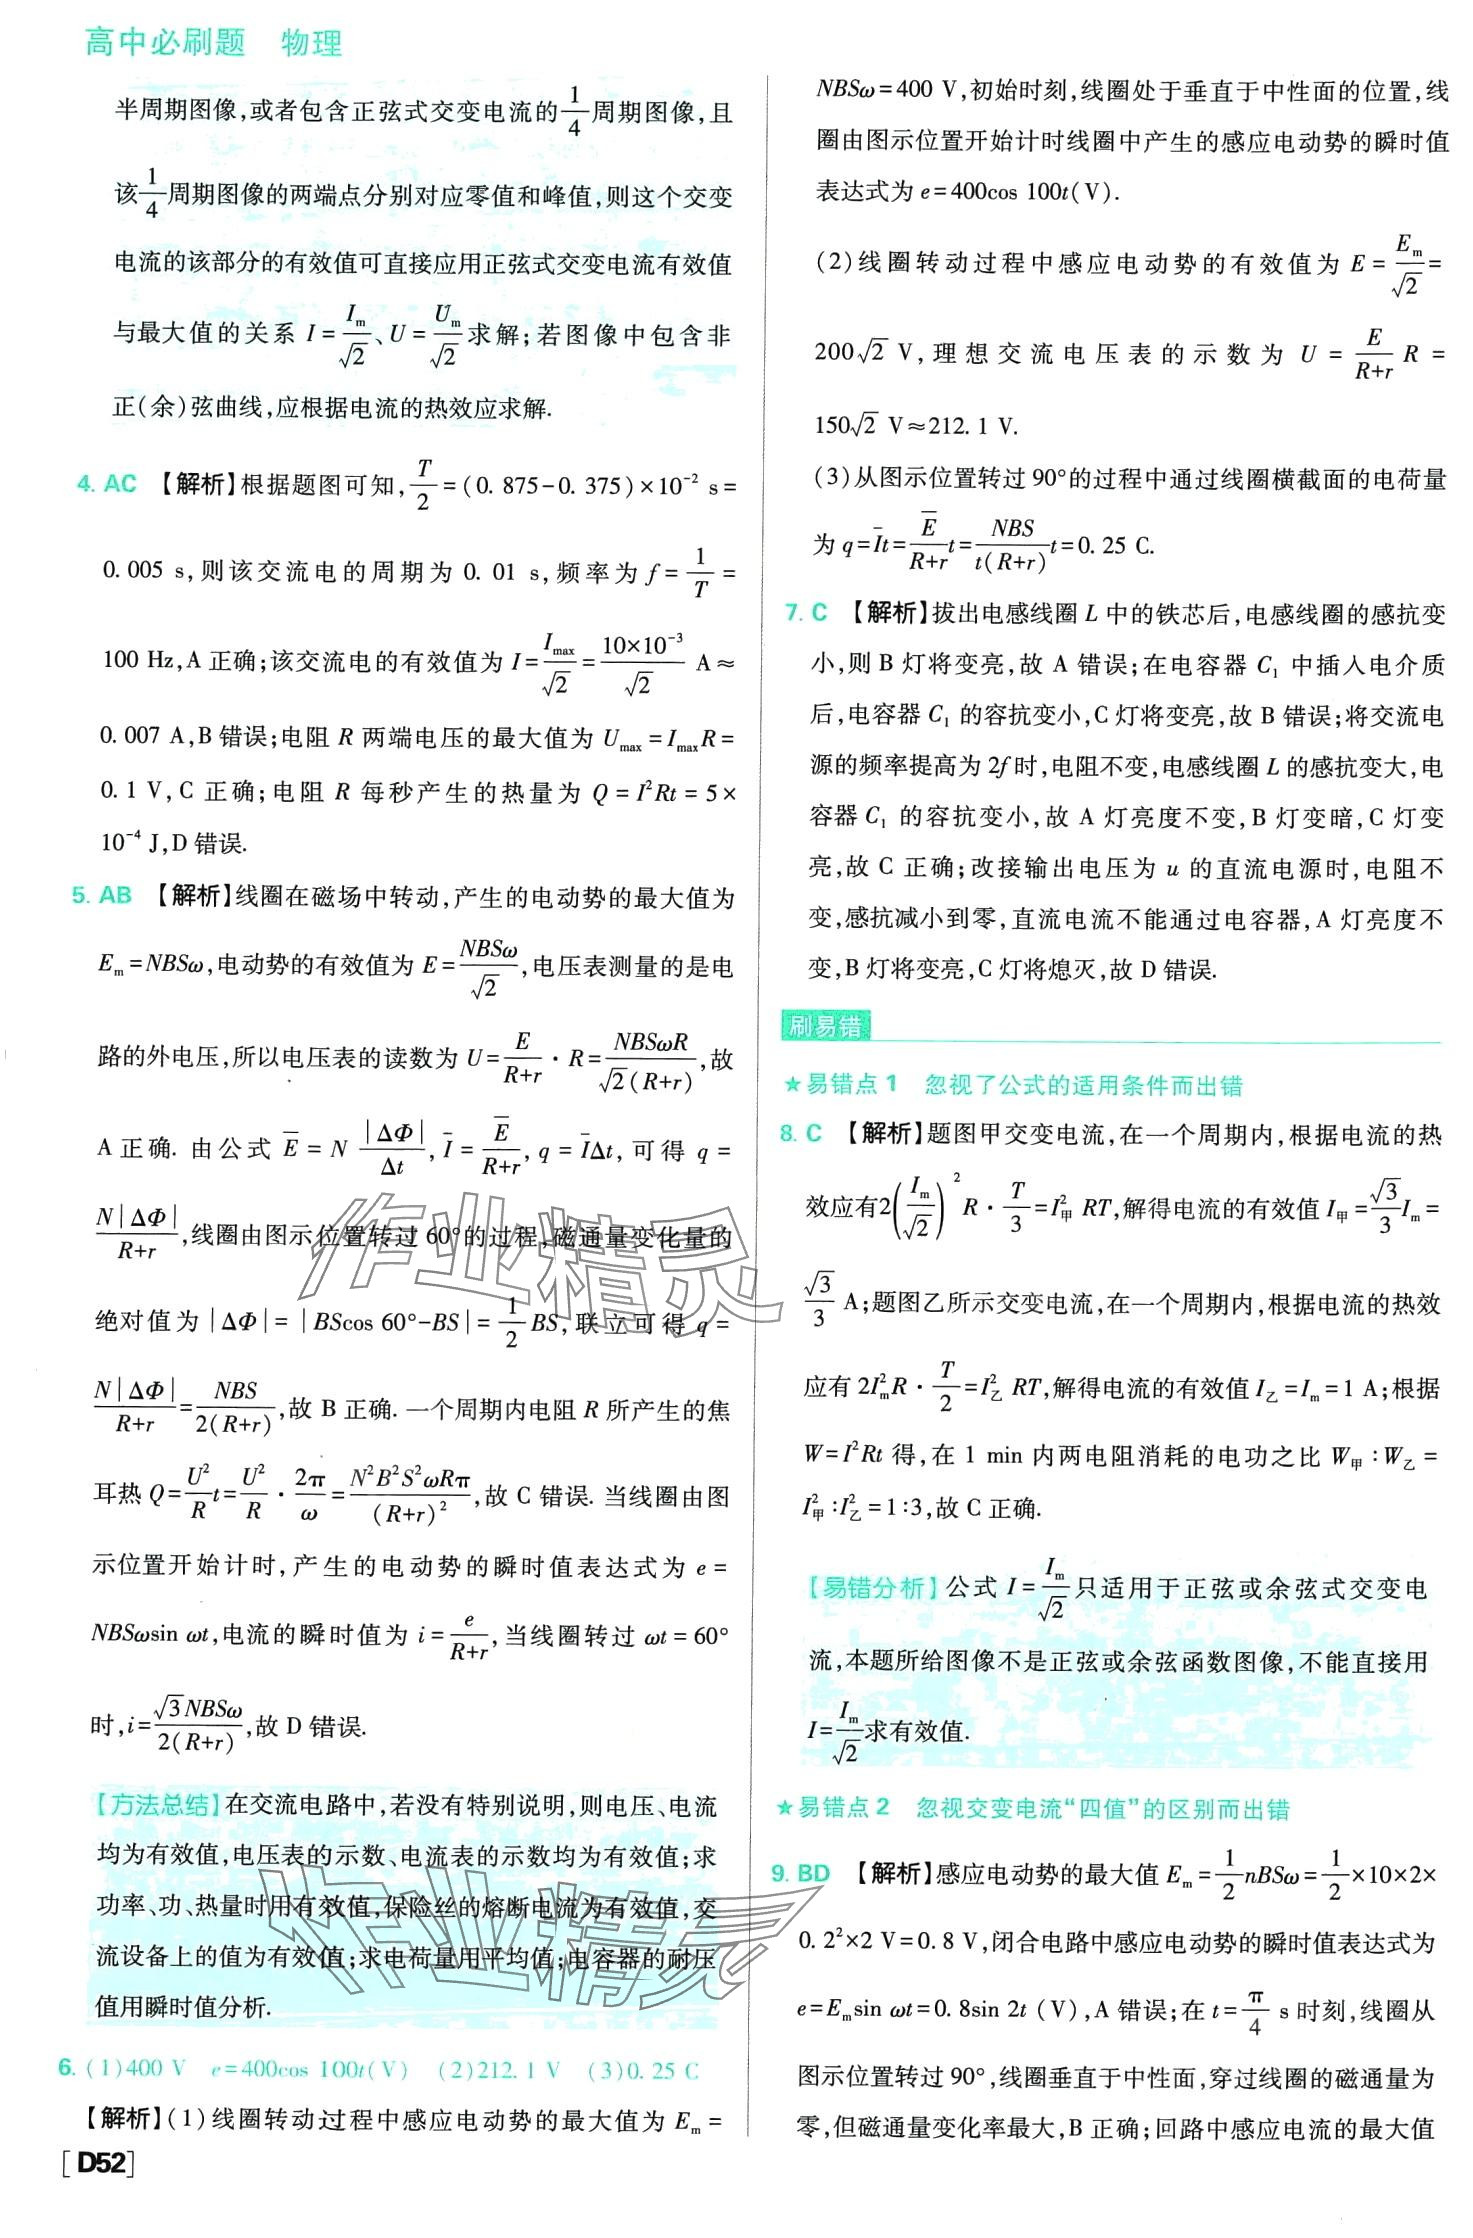 高中必刷题 物理
半周期图像,或者包含正弦式交变电流的1/4周期图像,且
该1/4周期图像的两端点分别对应零值和峰值,则这个交变
电流的该部分的有效值可直接应用正弦式交变电流有效值
与最大值的关系 I=Im/√2、U=Um/√2求解;若图像中包含非
正(余)弦曲线,应根据电流的热效应求解.
4. AC 【解析】根据题图可知,T/2=(0.875-0.375)×10⁻² s=
0.005 s,则该交流电的周期为 0.01 s,频率为 f=1/T=
100 Hz,A 正确;该交流电的有效值为 I=Imax/√2=10×10⁻³/√2 A≈
0.007 A,B 错误;电阻 R 两端电压的最大值为 Umax=ImaxR=
0.1 V,C 正确;电阻 R 每秒产生的热量为 Q=I²Rt=5×
10⁻⁴ J,D 错误.
5. AB 【解析】线圈在磁场中转动,产生的电动势的最大值为
Em=NBSω,电动势的有效值为 E=NBSω/√2,电压表测量的是电
路的外电压,所以电压表的读数为 U=E/(R+r)·R=NBSωR/(√2(R+r)),故
A 正确. 由公式 E̅=N|ΔΦ|/Δt,I̅=E̅/(R+r),q=I̅Δt,可得 q=
N|ΔΦ|/(R+r),线圈由图示位置转过 60°的过程,磁通量变化量的
绝对值为|ΔΦ|=|BScos 60°-BS|=1/2 BS,联立可得 q=
N|ΔΦ|/(R+r)=NBS/(2(R+r)),故 B 正确. 一个周期内电阻 R 所产生的焦
耳热 Q=U²/R t=U²/R·2π/ω=N²B²S²ωRπ/(R+r)²,故 C 错误. 当线圈由图
示位置开始计时,产生的电动势的瞬时值表达式为 e=
NBSωsin ωt,电流的瞬时值为 i=e/(R+r),当线圈转过 ωt=60°
时,i=√3NBSω/(2(R+r)),故 D 错误.
【方法总结】在交流电路中,若没有特别说明,则电压、电流
均为有效值,电压表的示数、电流表的示数均为有效值;求
功率、功、热量时用有效值,保险丝的熔断电流为有效值,交
流设备上的值为有效值;求电荷量用平均值;电容器的耐压
值用瞬时值分析.
6. (1)400 V e=400cos 100t(V) (2)212.1 V (3)0.25 C
【解析】(1)线圈转动过程中感应电动势的最大值为 Em=
[D52]
NBSω=400 V,初始时刻,线圈处于垂直于中性面的位置,线
圈由图示位置开始计时线圈中产生的感应电动势的瞬时值
表达式为 e=400cos 100t(V).
(2)线圈转动过程中感应电动势的有效值为 E=Em/√2=
200√2 V,理想交流电压表的示数为 U=E/(R+r) R=
150√2 V≈212.1 V.
(3)从图示位置转过 90°的过程中通过线圈横截面的电荷量
为 q=I̅t=E̅/(R+r) t=NBS/(t(R+r)) t=0.25 C.
7. C 【解析】拔出电感线圈 L 中的铁芯后,电感线圈的感抗变
小,则 B 灯将变亮,故 A 错误;在电容器 C₁ 中插入电介质
后,电容器 C₁ 的容抗变小,C 灯将变亮,故 B 错误;将交流电
源的频率提高为 2f 时,电阻不变,电感线圈 L 的感抗变大,电
容器 C₁ 的容抗变小,故 A 灯亮度不变,B 灯变暗,C 灯变
亮,故 C 正确;改接输出电压为 u 的直流电源时,电阻不
变,感抗减小到零,直流电流不能通过电容器,A 灯亮度不
变,B 灯将变亮,C 灯将熄灭,故 D 错误.
刷易错
★易错点 1 忽视了公式的适用条件而出错
8. C 【解析】题图甲交变电流,在一个周期内,根据电流的热
效应有2(Im/√2)²R·T/3=I甲² RT,解得电流的有效值 I甲=√3/3 Im=
√3/3 A;题图乙所示交变电流,在一个周期内,根据电流的热效
应有 2Im²R·T/2=I乙² RT,解得电流的有效值 I乙=Im=1 A;根据
W=I²Rt 得,在 1 min 内两电阻消耗的电功之比 W甲∶W乙=
I甲²∶I乙²=1∶3,故 C 正确.
【易错分析】公式 I=Im/√2只适用于正弦或余弦式交变电
流,本题所给图像不是正弦或余弦函数图像,不能直接用
I=Im/√2求有效值.
★易错点 2 忽视交变电流“四值”的区别而出错
9. BD 【解析】感应电动势的最大值 Em=1/2 nBSω=1/2×10×2×
0.2²×2 V=0.8 V,闭合电路中感应电动势的瞬时值表达式为
e=Emsin ωt=0.8sin 2t (V),A 错误;在 t=π/4 s 时刻,线圈从
图示位置转过 90°,线圈垂直于中性面,穿过线圈的磁通量为
零,但磁通量变化率最大,B 正确;回路中感应电流的最大值
作业精灵
作业精灵